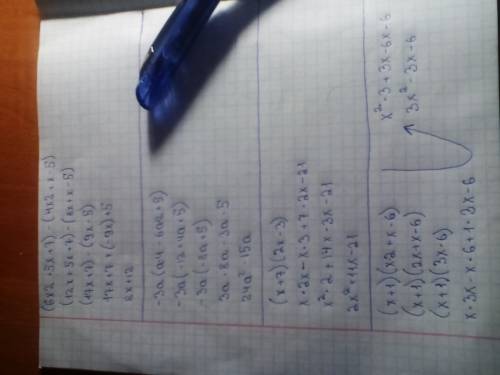 (6x2+5x+7)-(4x2+x-5)
(12x+5x+7)-(8x+x-5)
(17x+7)-(9x-5)
17x+7+(-9x)+5
8x+12
-3a(a4-6a2+5)
-3a(-12+4a+5)
-3a(-8a+5)
3a·8a-3a·5
24a²-15a
(x+7)(2x-3)
x·2x-x·3+7·2x-21
x²·2+14x-3x-21
2x²+11x-21
(x+1)(x2+x-6)
(x+1)(2x+x-6)
(x+1)(3x-6)
x·3x-x·6+1·3x-6
x²·3+3x-6x-6
3x²-3x-6